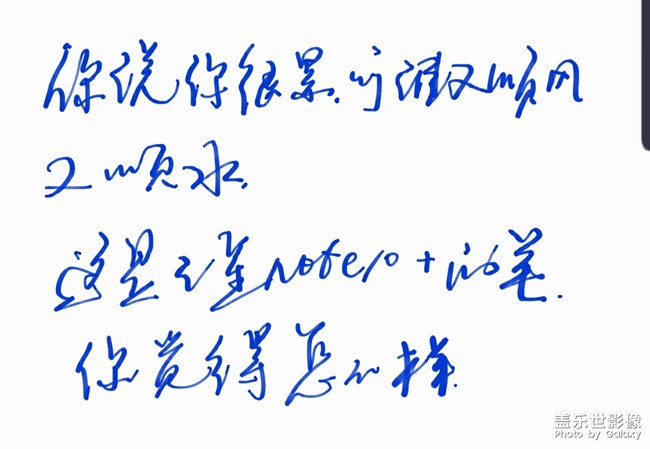 你说你很累,可谁又顺风
又顺水,
这是三星note10+的笔.
你觉得怎么样.
盖乐世影像
Photo by Galaxy